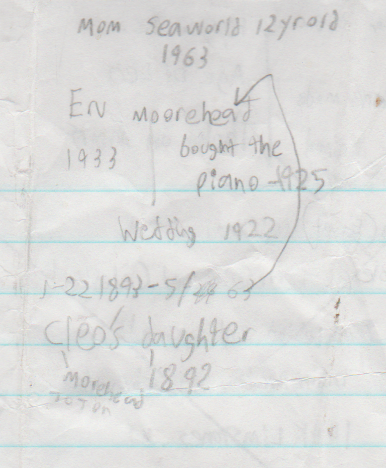 Mom Seaworld 12yrold
1963
EN Moorehead
1933 bought the
piano - 1925
Wedding 1922
1-22 1893 - 5/24 63
Cleo's daughter
Morehead 1892